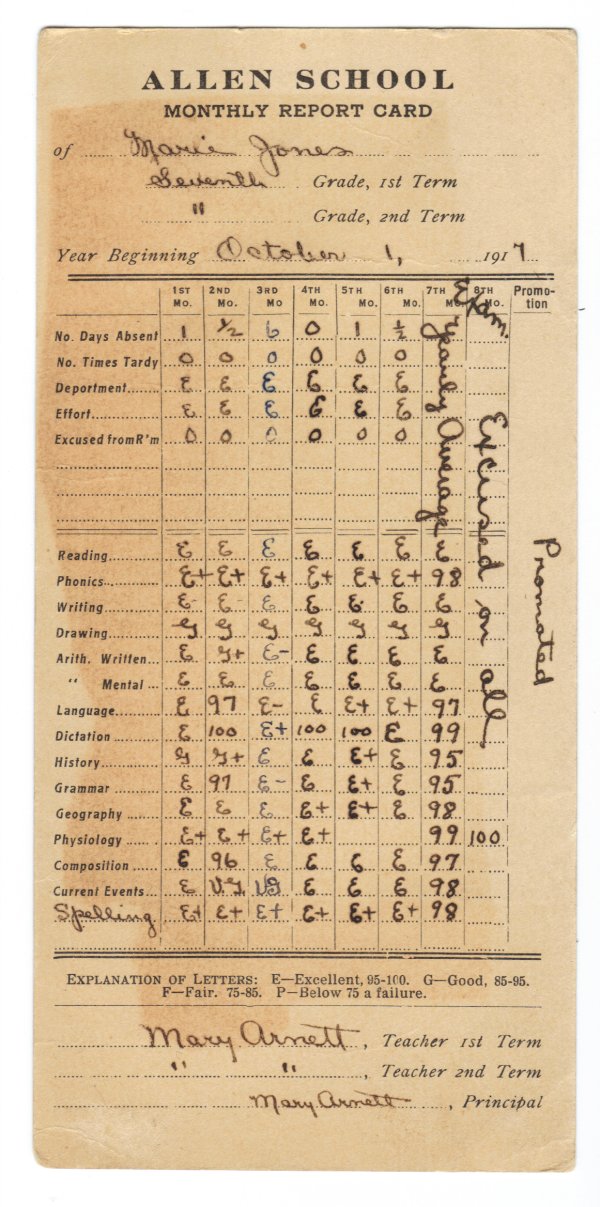 ALLEN SCHOOL
MONTHLY REPORT CARD
of Marie Jones
Seventh Grade, 1st Term
" Grade, 2nd Term
Year Beginning October 1, 1917
1ST Mo. 2ND Mo. 3RD Mo 4TH Mo. 5TH Mo. 6TH Mo. 7TH 8TH Mo. Promotion
Exam.
Yearly Average
Excused on all
Promoted
No. Days Absent 1 ½ 6 0 1 ½
No. Times Tardy 0 0 0 0 0 0
Deportment E E E E E E
Effort E E E E E E
Excused from R'm 0 0 0 0 0 0
Reading E E E E E E E
Phonics E+ E+ E+ E+ E+ E+ 98
Writing E E- E E E E E
Drawing G G G G G G G
Arith. Written E G+ E- E E E E
" Mental E E E E E E E
Language E 97 E- E E+ E+ 97
Dictation E 100 E+ 100 100 E 99
History G G+ E E E+ E 95
Grammar E 97 E- E E+ E 95
Geography E E E E+ E+ E 98
Physiology E+ E+ E+ E+ 99 100
Composition E 96 E E E E 97
Current Events E VG VG E E E 98
Spelling E+ E+ E+ E+ E+ E+ 98
EXPLANATION OF LETTERS: E—Excellent, 95-100. G—Good, 85-95.
F—Fair. 75-85. P—Below 75 a failure.
Mary Arnett, Teacher 1st Term
" ", Teacher 2nd Term
Mary Arnett, Principal